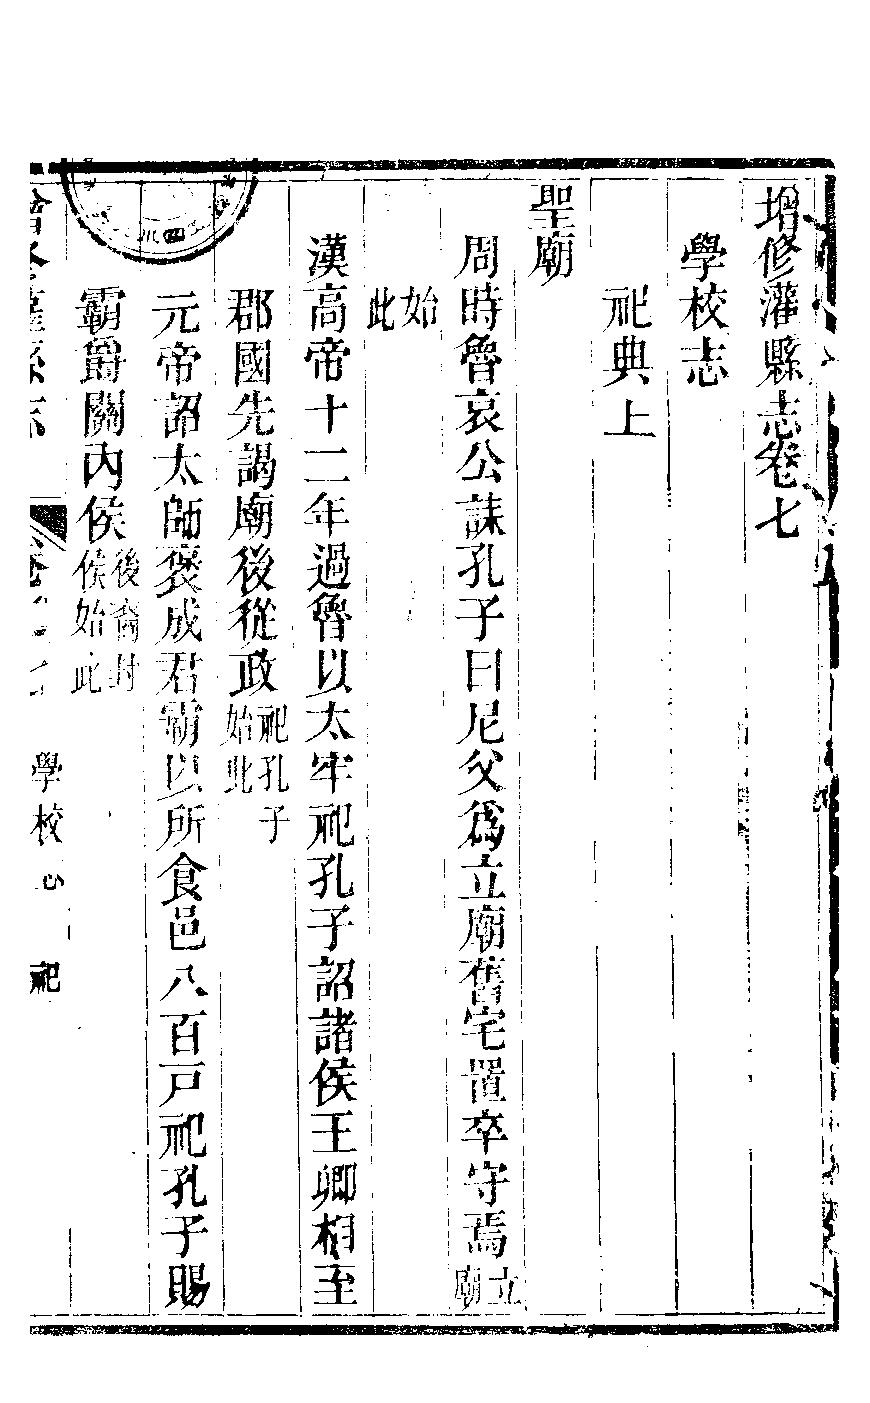 增修灌縣志卷七
學校志
祀典上
聖廟
周時魯哀公誄孔子曰尼父爲立廟舊宅置卒守焉立廟
始此
漢高帝十二年過魯以太牢祀孔子詔諸侯王卿相至
郡國先謁廟後從政祀孔子始此
元帝詔太師褒成君霸以所食邑八百戸祀孔子賜
霸爵關內侯後裔封侯始此
學校志 祀